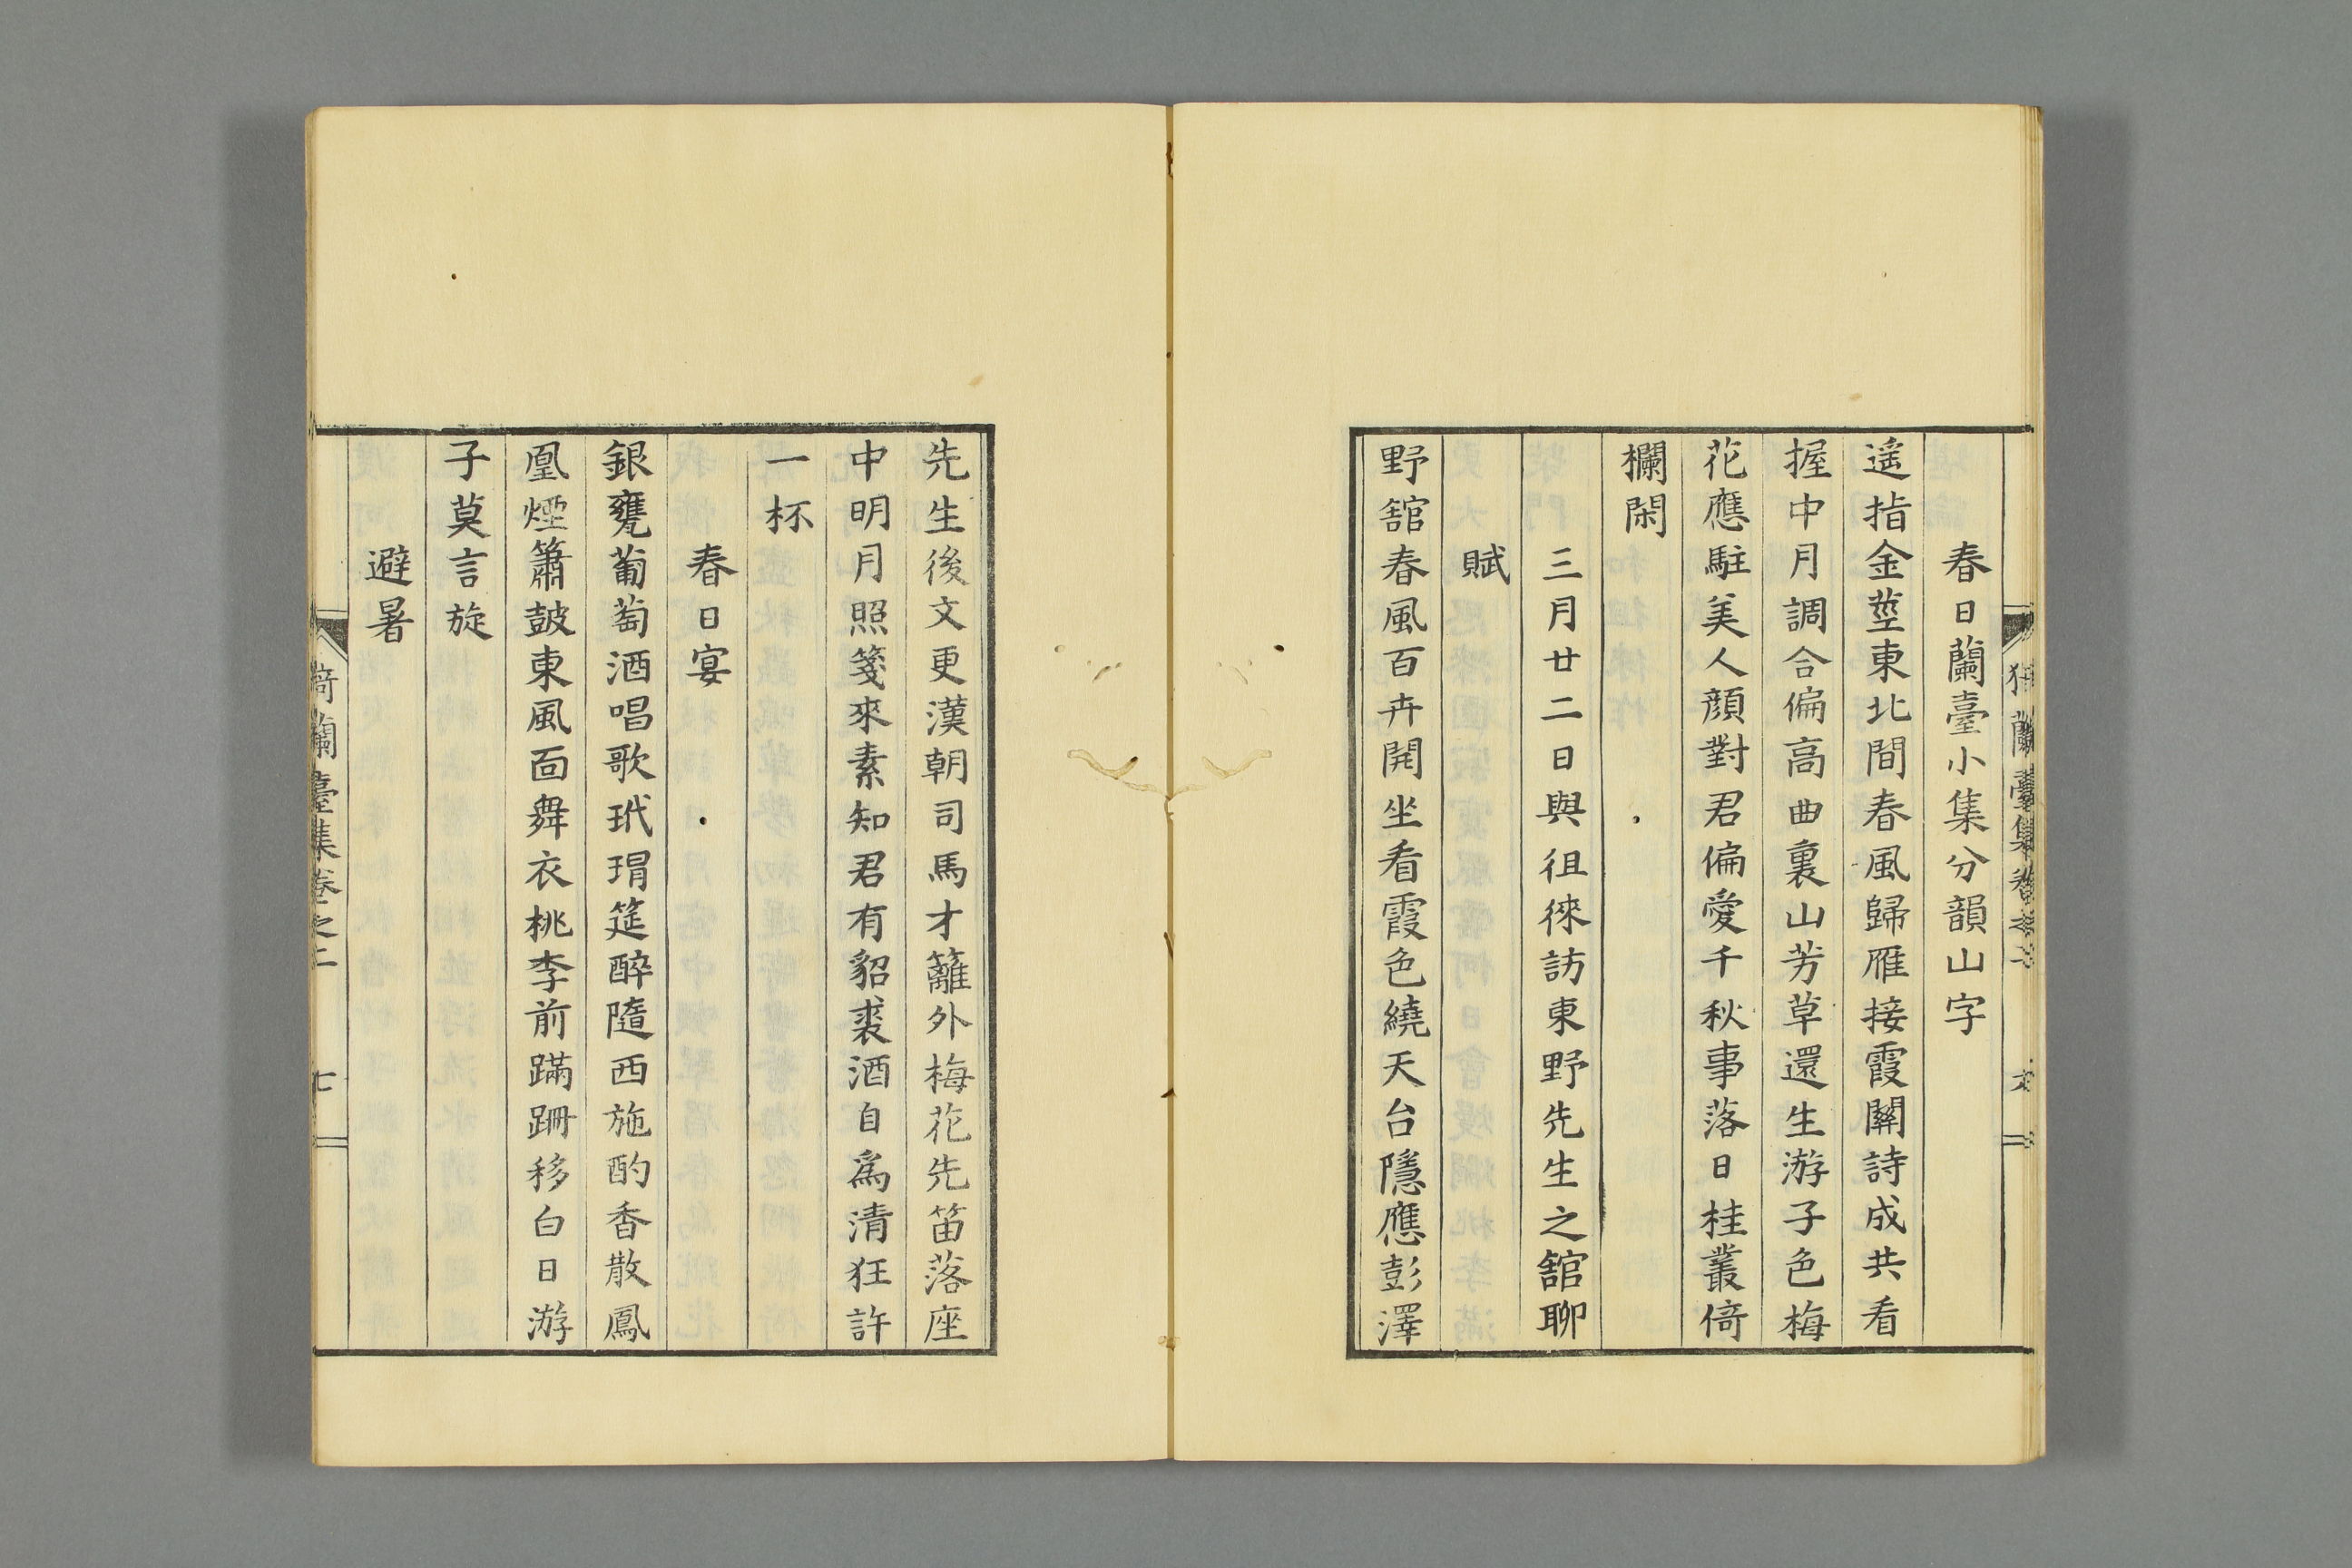 春日蘭臺小集分韻山字
遥指金莖東北間春風歸雁接霞關詩成共看
握中月調合偏高曲裏山芳草還生游子色梅
花應駐美人顔對君偏愛千秋事落日桂叢倚
欄閑
三月廿二日與徂徠訪東野先生之舘聊
賦
野舘春風百卉開坐看霞色繞天台隱應彭澤
先生後文更漢朝司馬才籬外梅花先笛落座
中明月照箋來素知君有貂裘酒自爲清狂許
一杯
春日宴
銀甕葡萄酒唱歌玳瑁筵醉隨西施酌香散鳳
凰煙簫鼓東風面舞衣桃李前蹣跚移白日游
子莫言旋
避暑
猗蘭臺集卷之二 七